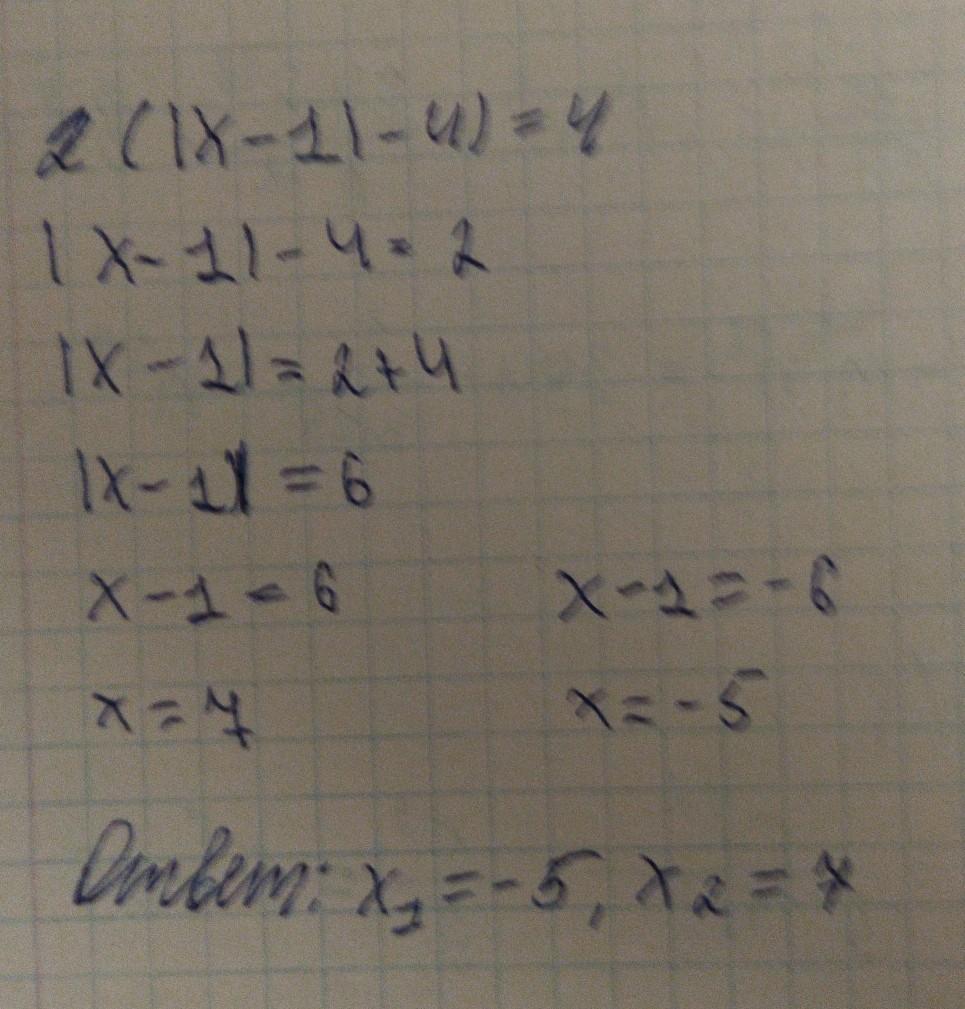 2(|x-1|-4)=4
|x-1|-4=2
|x-1|=2+4
|x-1|=6
x-1=6 x-1=-6
x=7 x=-5
Ответ: x₁=-5, x₂=7